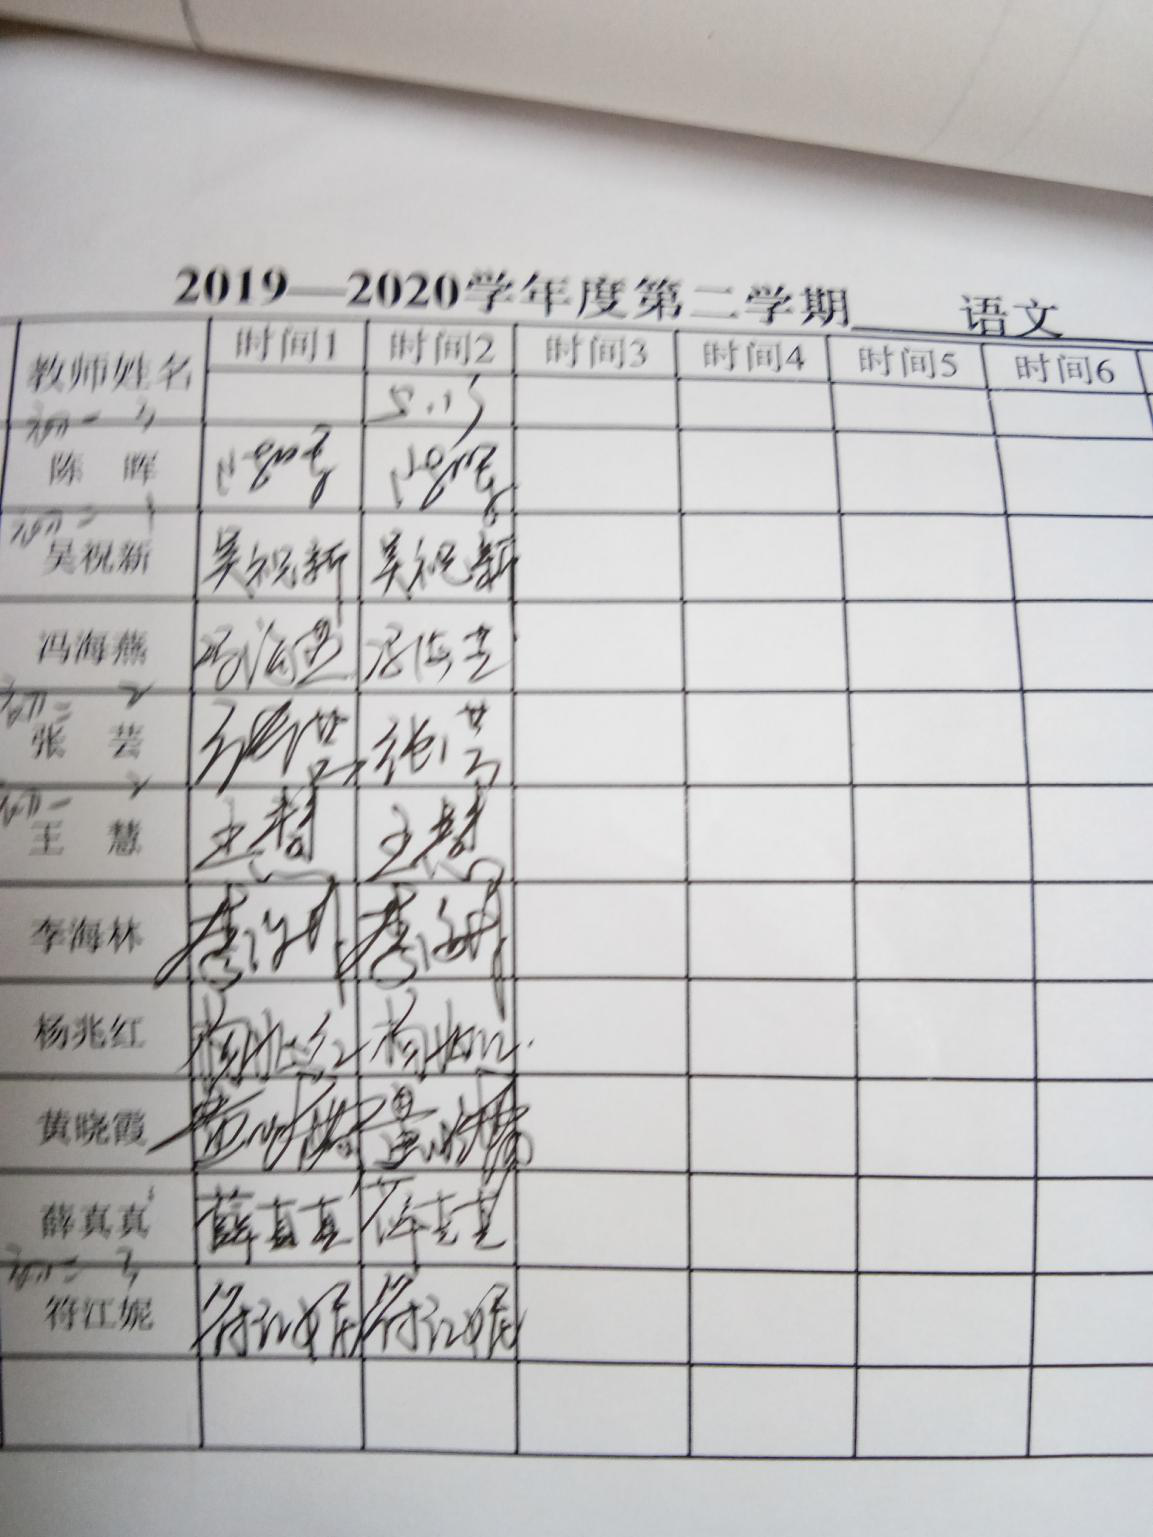 2019—2020学年度第二学期 语文
教师姓名 时间1 时间2 时间3 时间4 时间5 时间6
5.15
初一 3
陈 晖 陈晖 陈晖
初二 1
吴祝新 吴祝新 吴祝新
冯海燕 冯海燕 冯海燕
初二 2
张 芸 张芸 张芸
初一 2
王 慧 王慧 王慧
李海林 李海林 李海林
杨兆红 杨兆红 杨兆红
黄晓霞 黄晓霞 黄晓霞
薛真真 薛真真 薛真真
初二 3
符江妮 符江妮 符江妮